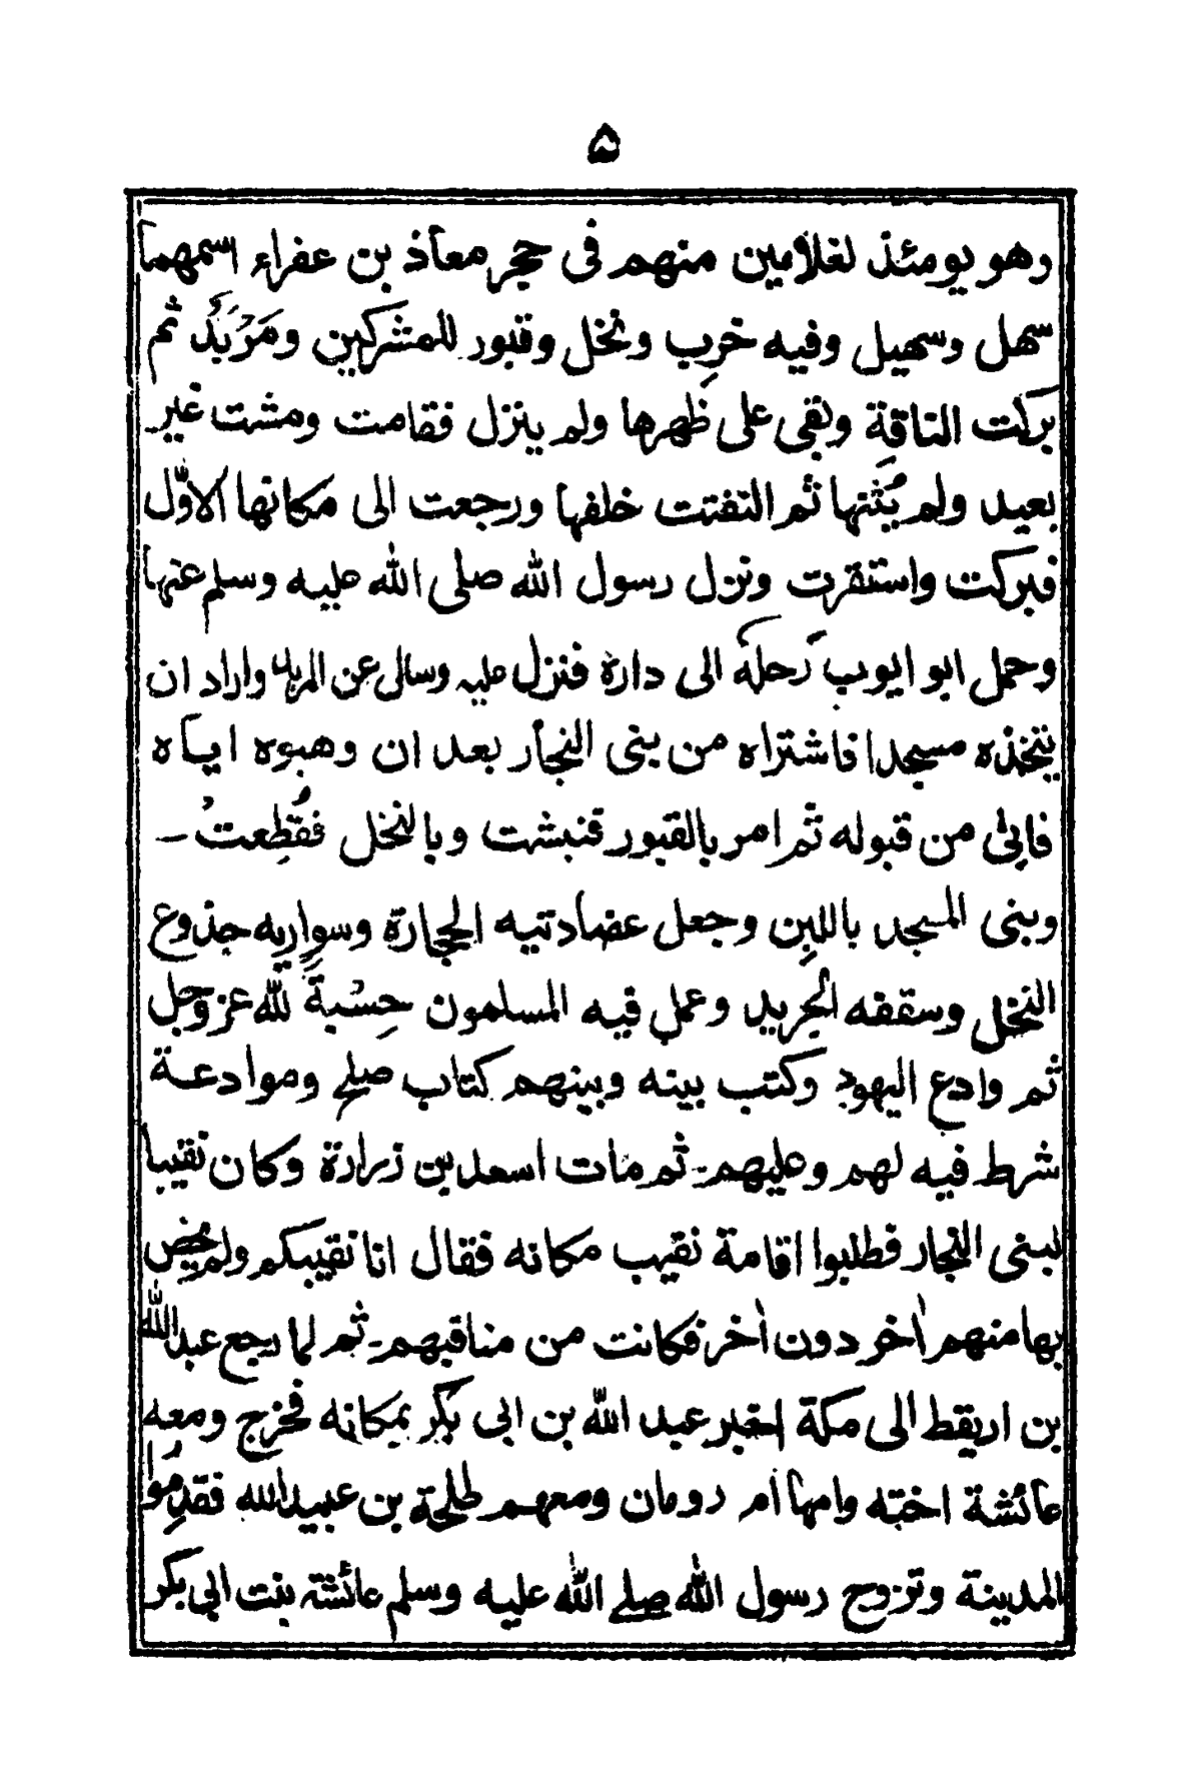 ۵
وهو يومئذ لغلامين منهم فى حجر معاذ بن عفراء اسمهما
سهل وسهيل وفيه خرِب ونخل وقبور للمشركين ومَرْبَدُ ثم
بركت الناقة وبقى على ظهرها ولم ينزل فقامت ومشت غير
بعيد ولم يُثنها ثم التفتت خلفها ورجعت الى مكانها الاوّل
فبركت واستقرت ونزل رسول الله صلى الله عليه وسلم عنها
وحمل ابو ايوب رحلهٗ الى دارهٖ فنزل عليه وسالى عن المربد واراد ان
يتخذه مسجدا فاشتراه من بنى النجار بعد ان وهبوه اياه
فابىٰ من قبوله ثم امر بالقبور فنبشت وبالنخل فقُطِعتُ -
وبنى المسجد باللبِن وجعل عضادتيه الحجارة وسوارِيه جذوع
النخل وسقفه الجريد وعمل فيه المسلمون حِسْبةً لله عز وجل
ثم وادع اليهود وكتب بينه وبينهم كتاب صلح وموادعة
شرط فيه لهم وعليهم۔ ثم مات اسعد بن زرارة وكان نقيبا
لبنى النجار فطلبوا اقامة نقيب مكانه فقال انا نقيبكم ولم يخص
بها منهم اٰخر دون اٰخر فكانت من مناقبهم۔ ثم لما رجع عبد الله
بن اريقط الى مكة اخبر عبد الله بن ابى بكر بمكانه فخرج ومعه
عائشة اخته وامها ام رومان ومعهم طلحة بن عبيد الله فقدِمُوا
المدينة وتزوج رسول الله صلے الله عليه وسلم عائشة بنت ابى بكر